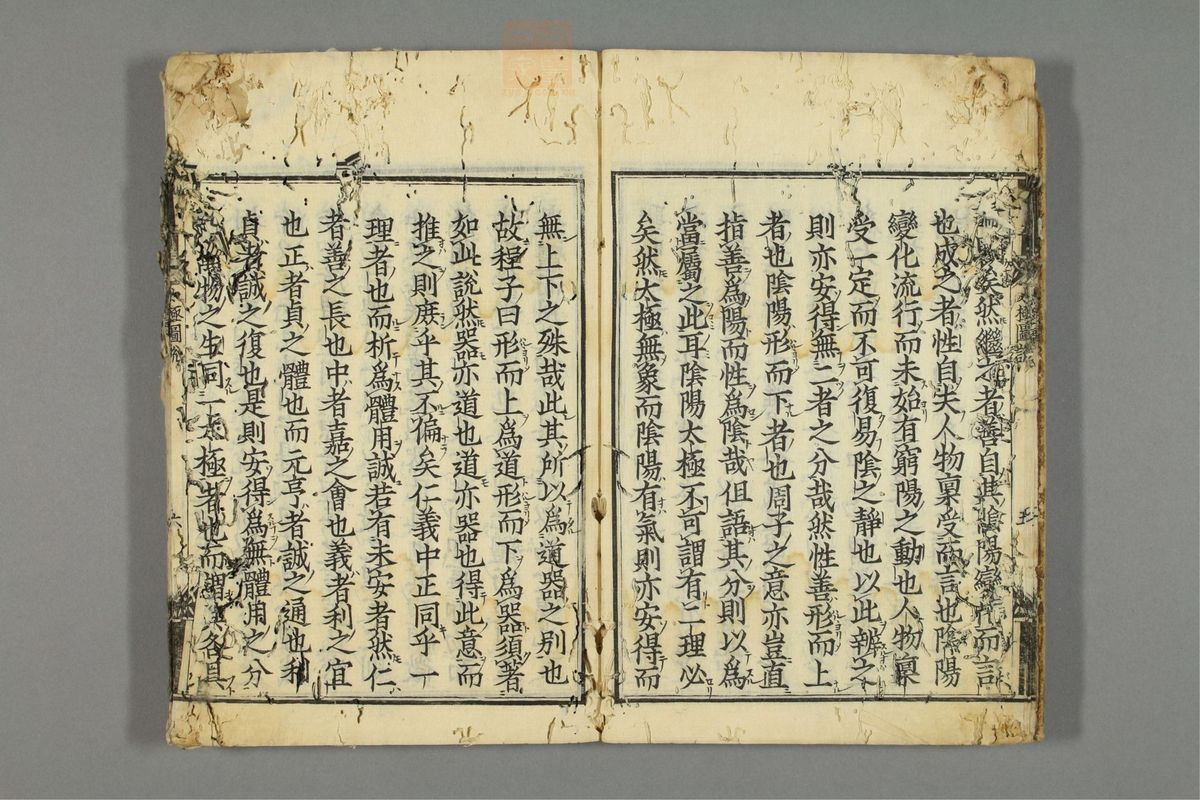 矣然繼之者善自其陰陽變化而言
也成之者性自夫人物禀受而言也陰陽
變化流行而未始有窮陽之動也人物禀
受一定而不可復易陰之靜也以此辨之
則亦安得無二者之分哉然性善形而上
者也陰陽形而下者也周子之意亦豈直
指善爲陽而性爲陰哉但語其分則以爲
當屬之此耳陰陽太極不可謂有二理必
矣然太極無象而陰陽有氣則亦安得而
無上下之殊哉此其所以爲道器之别也
故程子曰形而上爲道形而下爲器須著
如此說然器亦道也道亦器也得此意而
推之則庶乎其不偏矣仁義中正同乎一
理者也而析爲體用誠若有未安者然仁
者善之長也中者嘉之會也義者利之宜
也正者貞之體也而元亨者誠之通也利
貞者誠之復也是則安得爲無體用之分
物之生同一太極者也而謂其各具
極圖
六